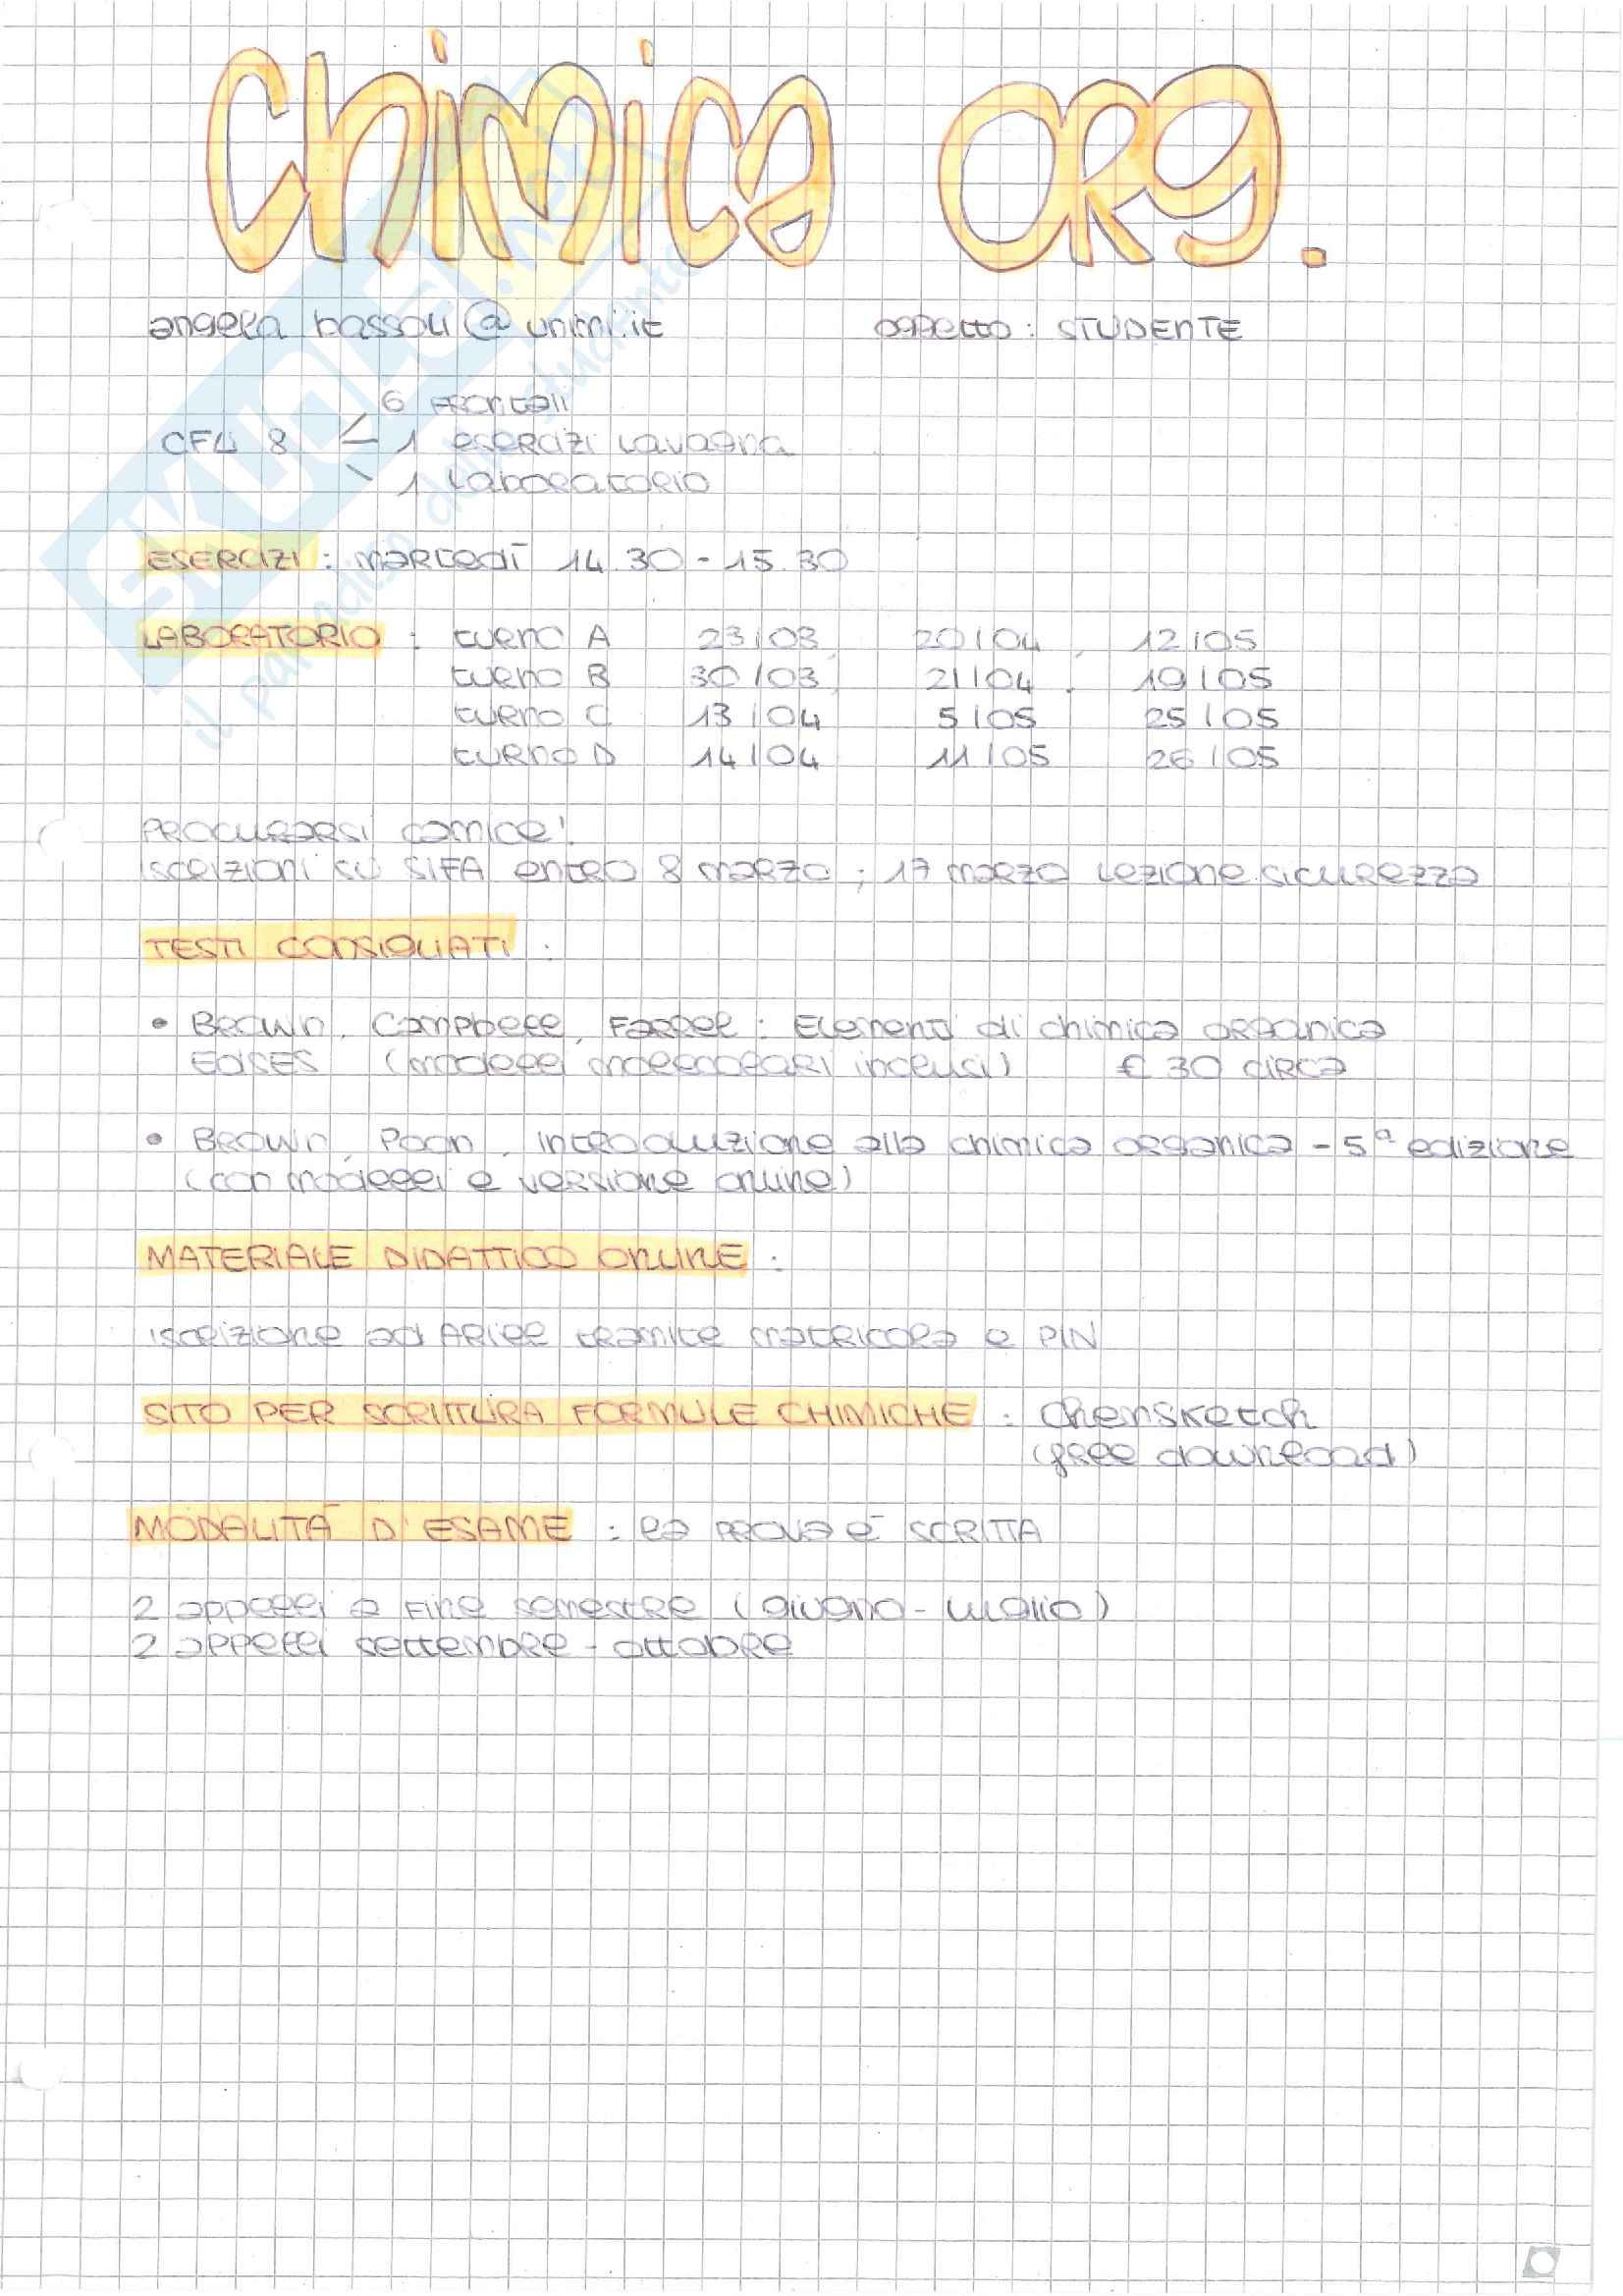 chimica ORG.
angela bassoli@unimi.it oggetto: STUDENTE
6 frontali
CFU 8 1 esercizi lavagna
1 laboratorio
ESERCIZI: martedì 14.30 - 15.30
LABORATORIO: turno A 23/03, 20/04, 12/05
turno B 30/03, 21/04, 19/05
turno C 13/04 5/05 25/05
turno D 14/04 11/05 26/05
procurarsi camice!
iscrizioni su SIFA entro 8 marzo; 17 marzo lezione sicurezza
TESTI CONSIGLIATI:
• Brown, Campbell, Farrel: Elementi di chimica organica
EDISES (modelli molecolari inclusi) € 30 circa
• Brown, Poon, introduzione alla chimica organica - 5ª edizione
(con modelli e versione online)
MATERIALE DIDATTICO ONLINE:
iscrizione ad Ariel tramite matricola e PIN
SITO PER SCRITTURA FORMULE CHIMICHE: Chemsketch
(free download)
MODALITÀ D'ESAME: la prova è SCRITTA
2 appelli a fine semestre (giugno - luglio)
2 appelli settembre - ottobre
SKUOLA.net
il paradiso dello studente